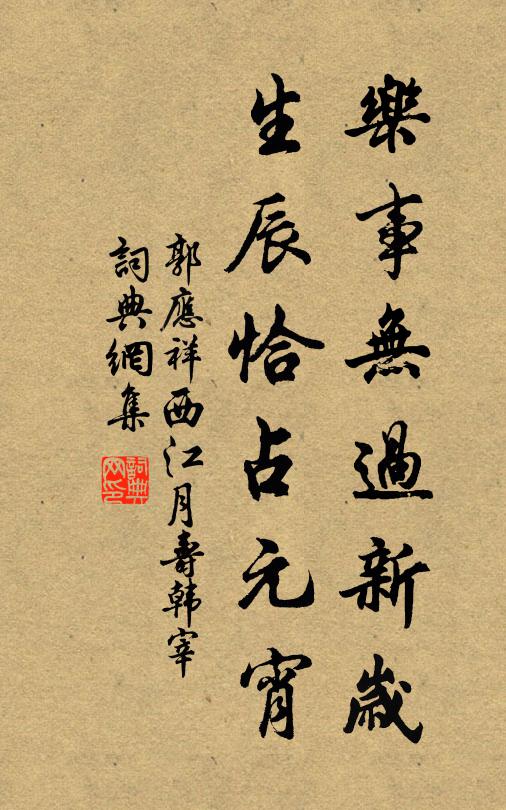 樂事無過新歲
生辰恰占元宵
郭應祥西江月壽韓宰
詞典網集
詞典網印